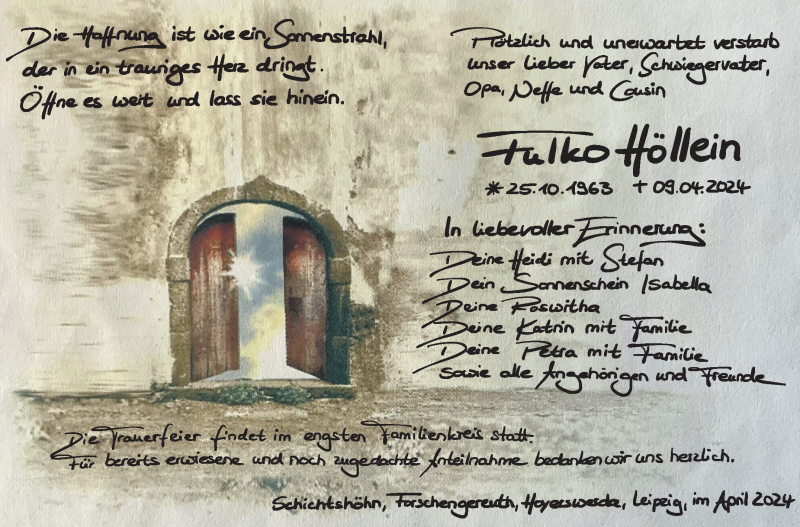 Die Hoffnung ist wie ein Sonnenstrahl,
der in ein trauriges Herz dringt.
Öffne es weit und lass sie hinein.
Plötzlich und unerwartet verstarb
unser lieber Vater, Schwiegervater,
Opa, Neffe und Cousin
Fulko Höllein
* 25.10.1963 † 09.04.2024
In liebevoller Erinnerung:
Deine Heidi mit Stefan
Dein Sonnenschein Isabella
Deine Roswitha
Deine Katrin mit Familie
Deine Petra mit Familie
sowie alle Angehörigen und Freunde
Die Trauerfeier findet im engsten Familienkreis statt.
Für bereits erwiesene und noch zugedachte Anteilnahme bedanken wir uns herzlich.
Schichtshöhn, Forschengereuth, Hoyerswerda, Leipzig, im April 2024